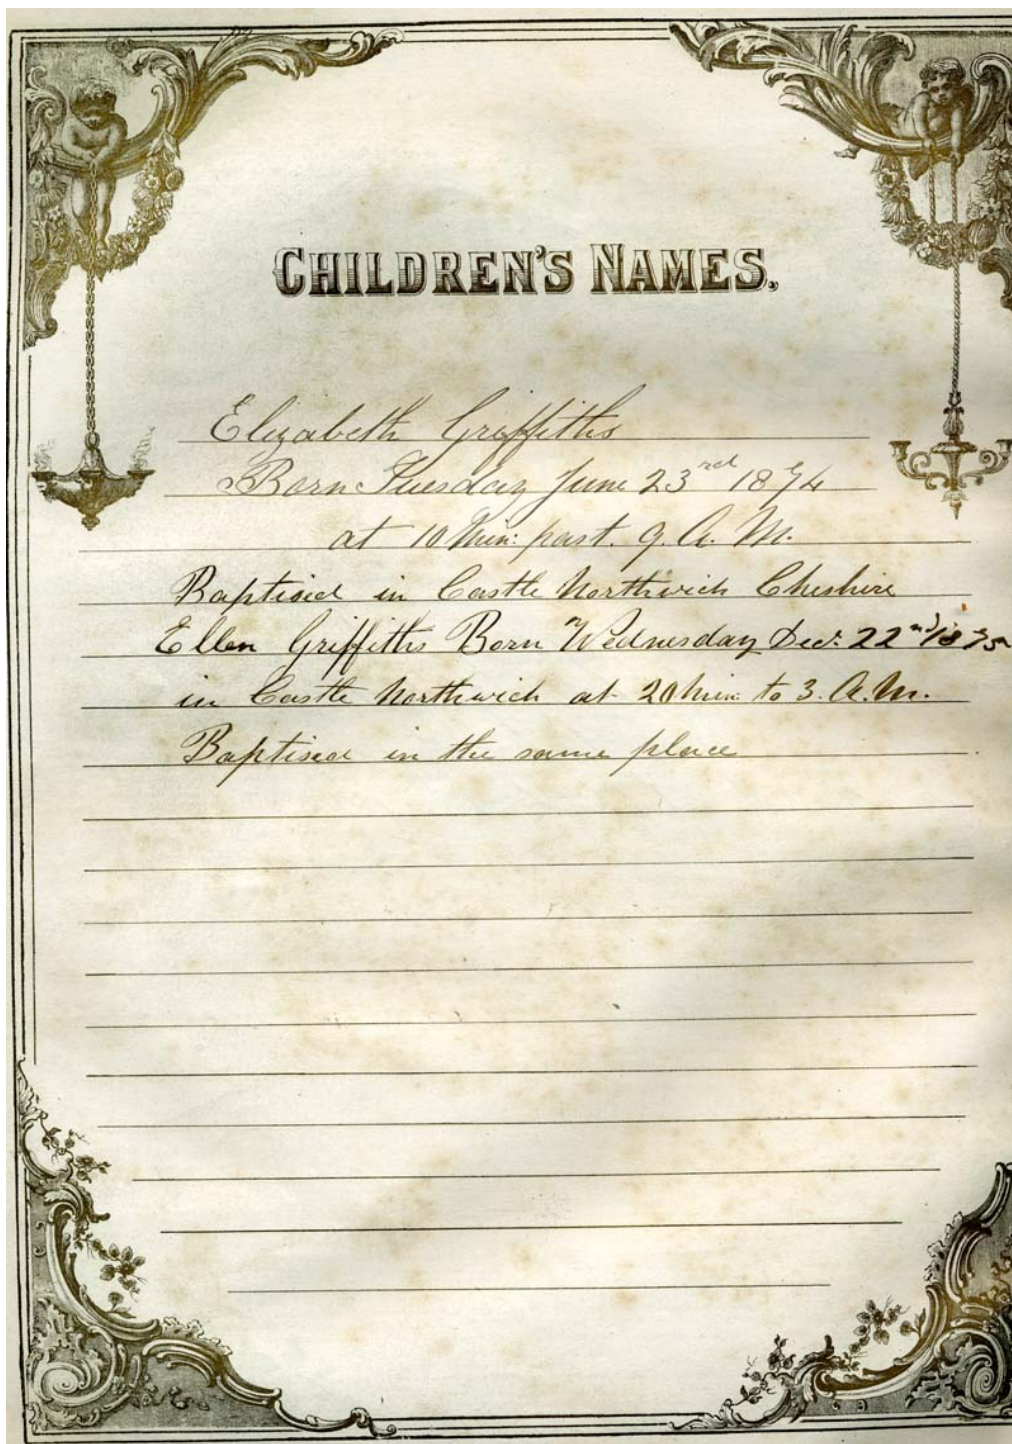 CHILDREN'S NAMES.
Elizabeth Griffiths
Born Tuesday June 23rd 1874
at 10 Min: past. 9. A. M.
Baptised in Castle Northwich Cheshire
Ellen Griffiths Born Wednesday Dec: 22nd 1875
in Castle Northwich at 20 min: to 3. A. M.
Baptised in the same place